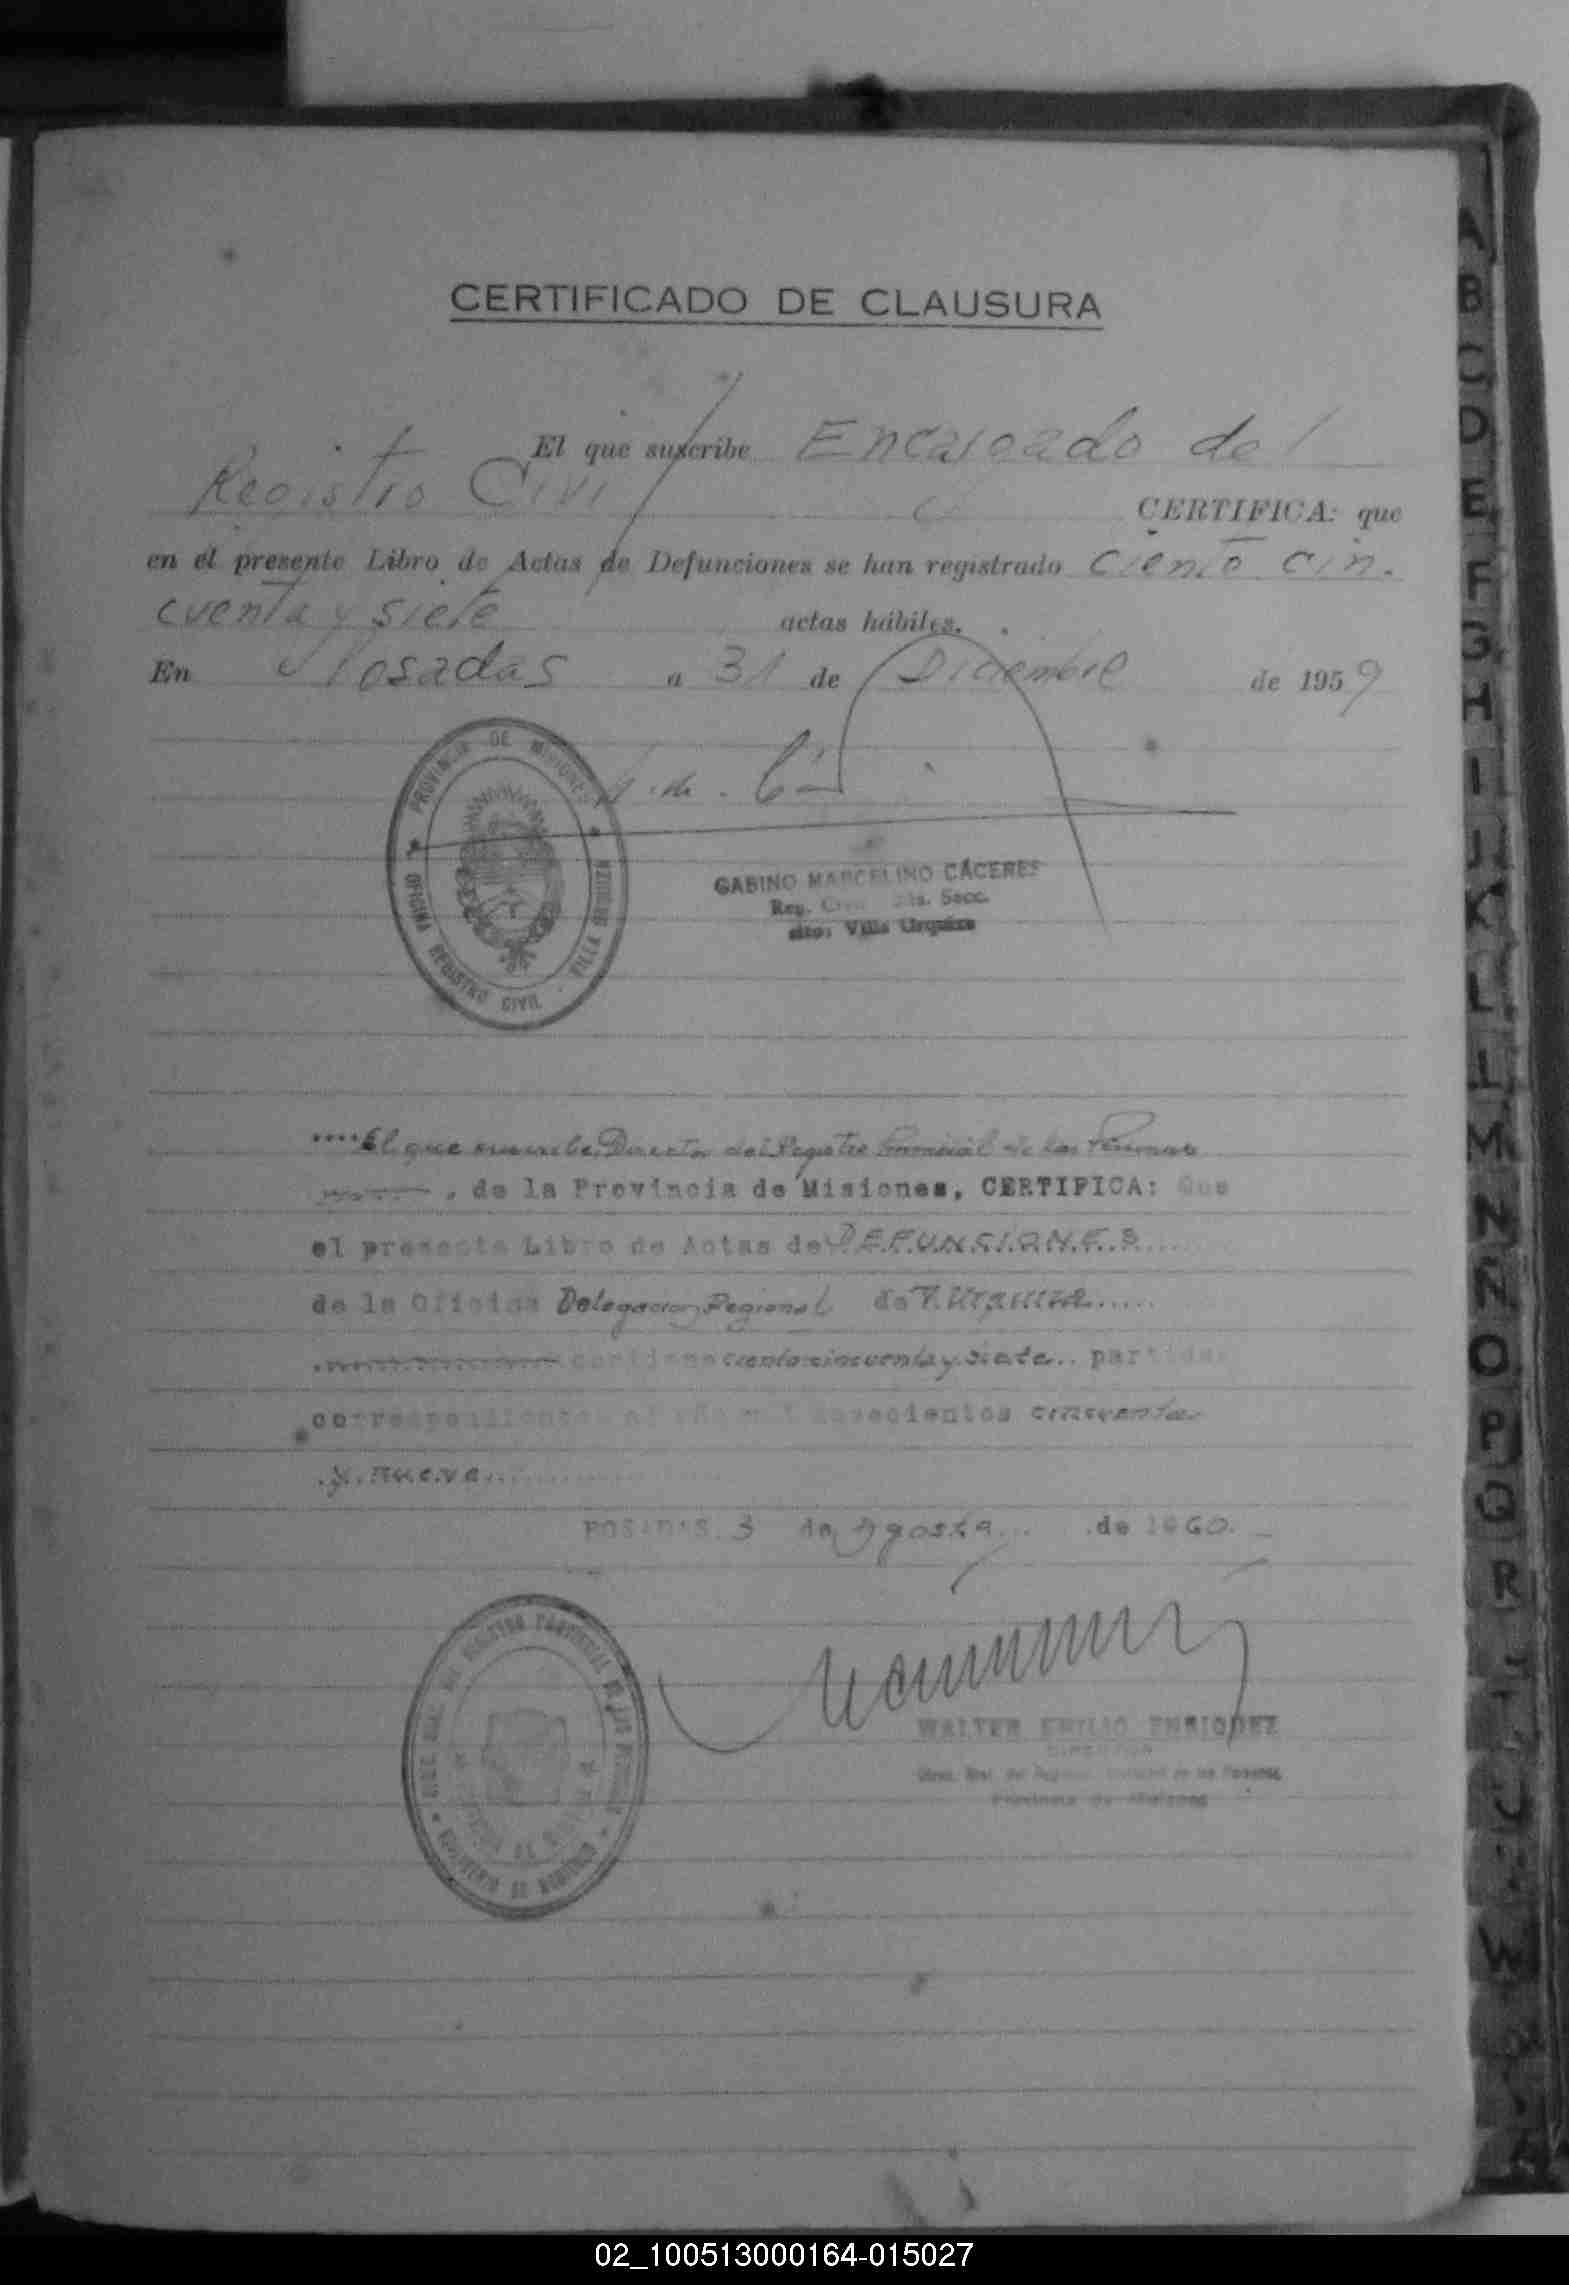 CERTIFICADO DE CLAUSURA
El que suscribe Encargado del
Registro Civil CERTIFICA: que
en el presente Libro de Actas de Defunciones se han registrado ciento cin.
cuenta y siete actas hábiles.
En Posadas a 31 de Diciembre de 1959
PROVINCIA DE MISIONES
OFICINA REGISTRO CIVIL - VILLA URQUIZA
GABINO MARCELINO CÁCERES
Reg. Civil Secc.
Villa Urquiza
El que suscribe, Director del Registro Provincial de las Personas
, de la Provincia de Misiones, CERTIFICA: Que
el presente Libro de Actas de D.E.F.U.N.S.I.O.N.E.S
de la Oficina Delegacion Regional de V. Urquiza
contiene ciento cincuenta y siete partidas
correspondientes al año mil novecientos cincuenta
y nueve
POSADAS, 3 de Agosto de 1960.
WALTER EMILIO ENRIQUEZ
DIRECTOR
Direc. Gral. del Registro Provincial de las Personas
Provincia de Misiones
A
B
C
D
E
F
G
H
I
J
K
L
L
M
N
Ñ
O
P
Q
R
T
U
W
02_100513000164-015027